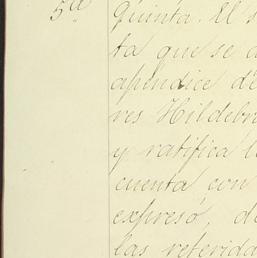 5ª Quinta. El s
ta que se a
apéndice de
res Hildebr
y ratifica l
cuenta con
expresó, de
las referida